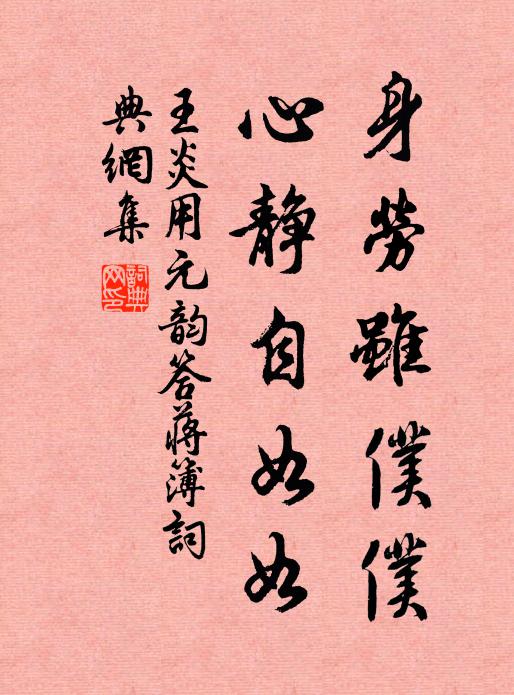 身勞雖僕僕
心静自如如
王炎用元韵答蔣簿詞
典網集
詞典網印